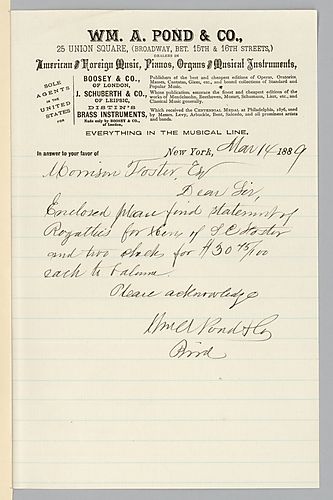 WM. A. POND & CO.,
25 UNION SQUARE, (BROADWAY, BET. 15TH & 16TH STREETS,)
DEALERS IN
American and Foreign Music, Pianos, Organs and Musical Instruments,
SOLE AGENTS IN THE UNITED STATES FOR
BOOSEY & CO.,
OF LONDON,
Publishers of the best and cheapest editions of Operas, Oratorios, Masses, Cantatas, Glees, etc., and bound collections of Standard and Popular Music.
J. SCHUBERTH & CO.
OF LEIPSIC,
Whose publications embrace the finest and cheapest editions of the works of Mendelssohn, Beethoven, Mozart, Schumann, Liszt, etc., and Classical Music generally.
DISTIN'S
BRASS INSTRUMENTS,
Made only by BOOSEY & CO., of London,
Which received the CENTENNIAL MEDAL at Philadelphia, 1876, used by Messrs. Levy, Arbuckle, Bent, Salcedo, and all prominent artists and bands.
EVERYTHING IN THE MUSICAL LINE.
In answer to your favor of
New York, Mar 14 1889
Morrison Foster, Esq
Dear Sir,
Enclosed please find statement of
Royalties for heirs of S C Foster
and two checks for $30 45/100
each to balance.
Please acknowledge
Wm A Pond & Co